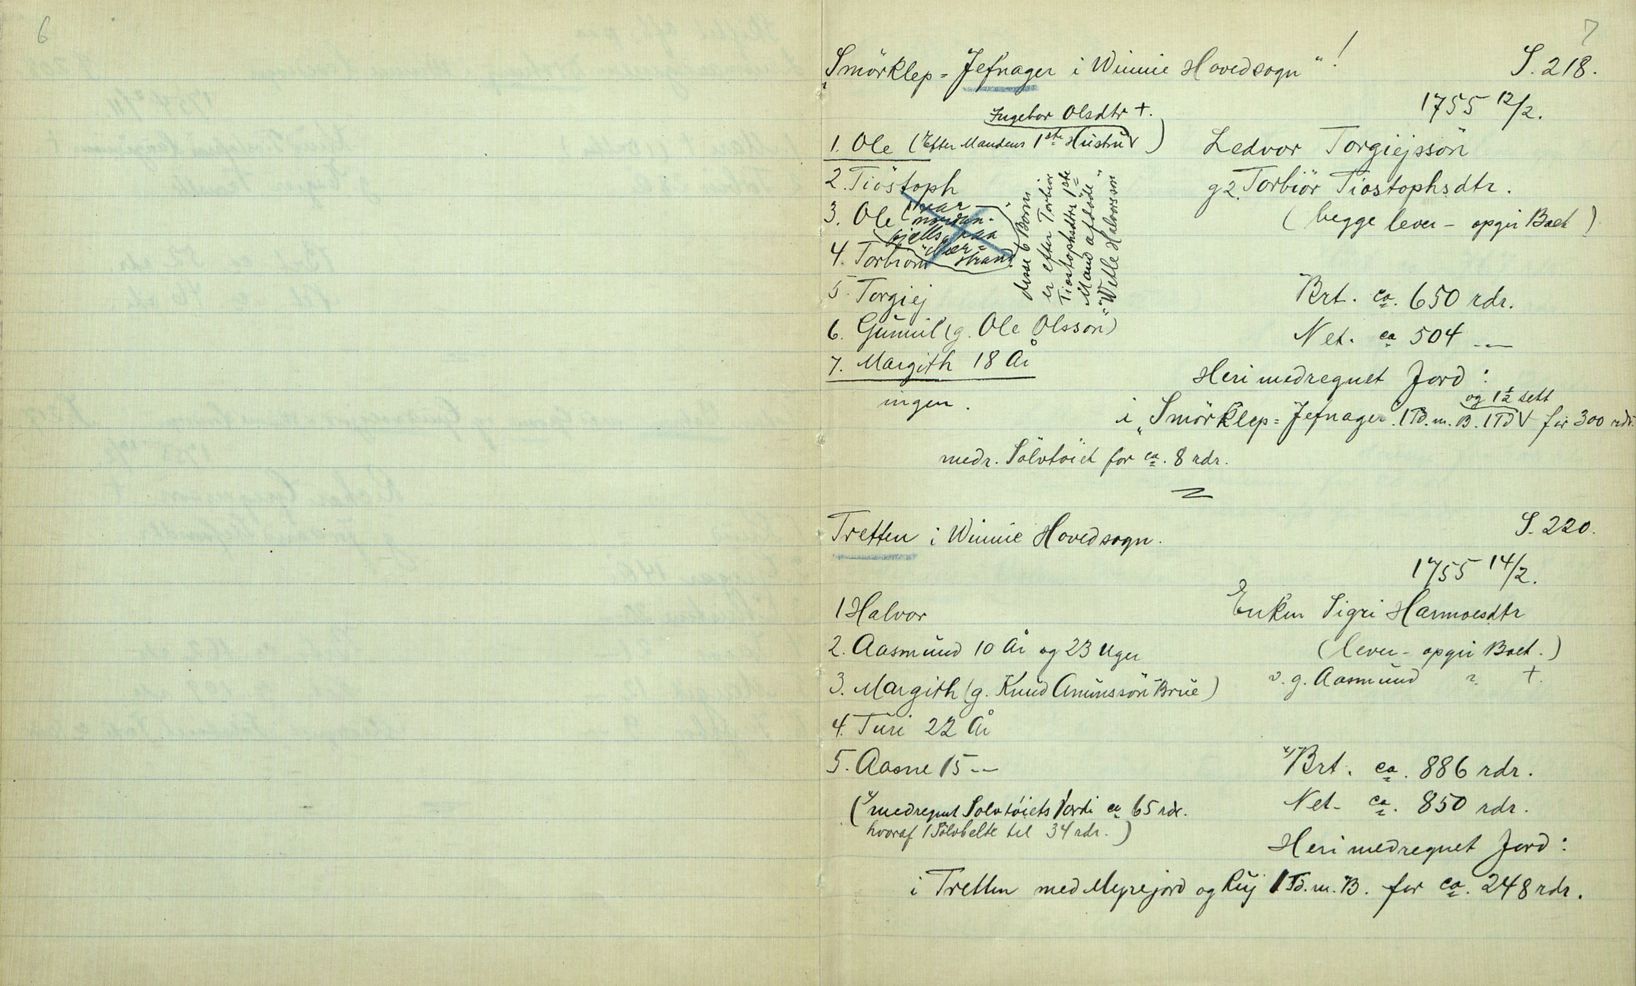 6
7
"Smörklep = Jefnager i Winnie Hovedsogn" ! S. 218.
1755 12/2.
Ingebor Olsdtr +.
1. Ole (Efter Mandens 1ste Hustru) Ledvor Torgiejssön
2. Tiostoph g 2. Torbiör Tiostophsdtr.
3. Ole (begge lever - opgir Boet)
4. Torbiörn
disse 6 Börn
er efter Torbiör
Tiostophsdtrs 1ste
Mand afdöde
"Wetle Halvorssön"
5. Torgiej Brt. ca. 650 rdr.
6. Gunnil (g. Ole Olssön) Net. ca 504 -"-
7. Margith 18 År Heri medregnet Jord:
ingen. og 1 1/2 sett
i "Smörklep = Jefnager. 1 Td. m. B. 1 Td V for 300 rdr.
medr. Sölvtöiet for ca. 8 rdr.
Tretten i Winnie Hovedsogn. S. 220.
1755 14/2.
1 Halvor Enken Sigri Harmoesdtr
2. Aasmund 10 År og 23 Uger (lever - opgir Boet.)
3. Margith (g. Knud Amunssön Brue) v. g. Aasmund ? +.
4. Turi 22 År
5. Aasne 15 -"- x) Brt. ca. 886 rdr.
(x) medregnet Sölvtöiets Værdi ca 65 rdr. Net. ca. 850 rdr.
hvoraf 1 Sölvbelte til 34 rdr.)
Heri medregnet Jord:
i Tretten med Myrejord og Ruj 1 Td. m. B. for ca. 248 rdr.